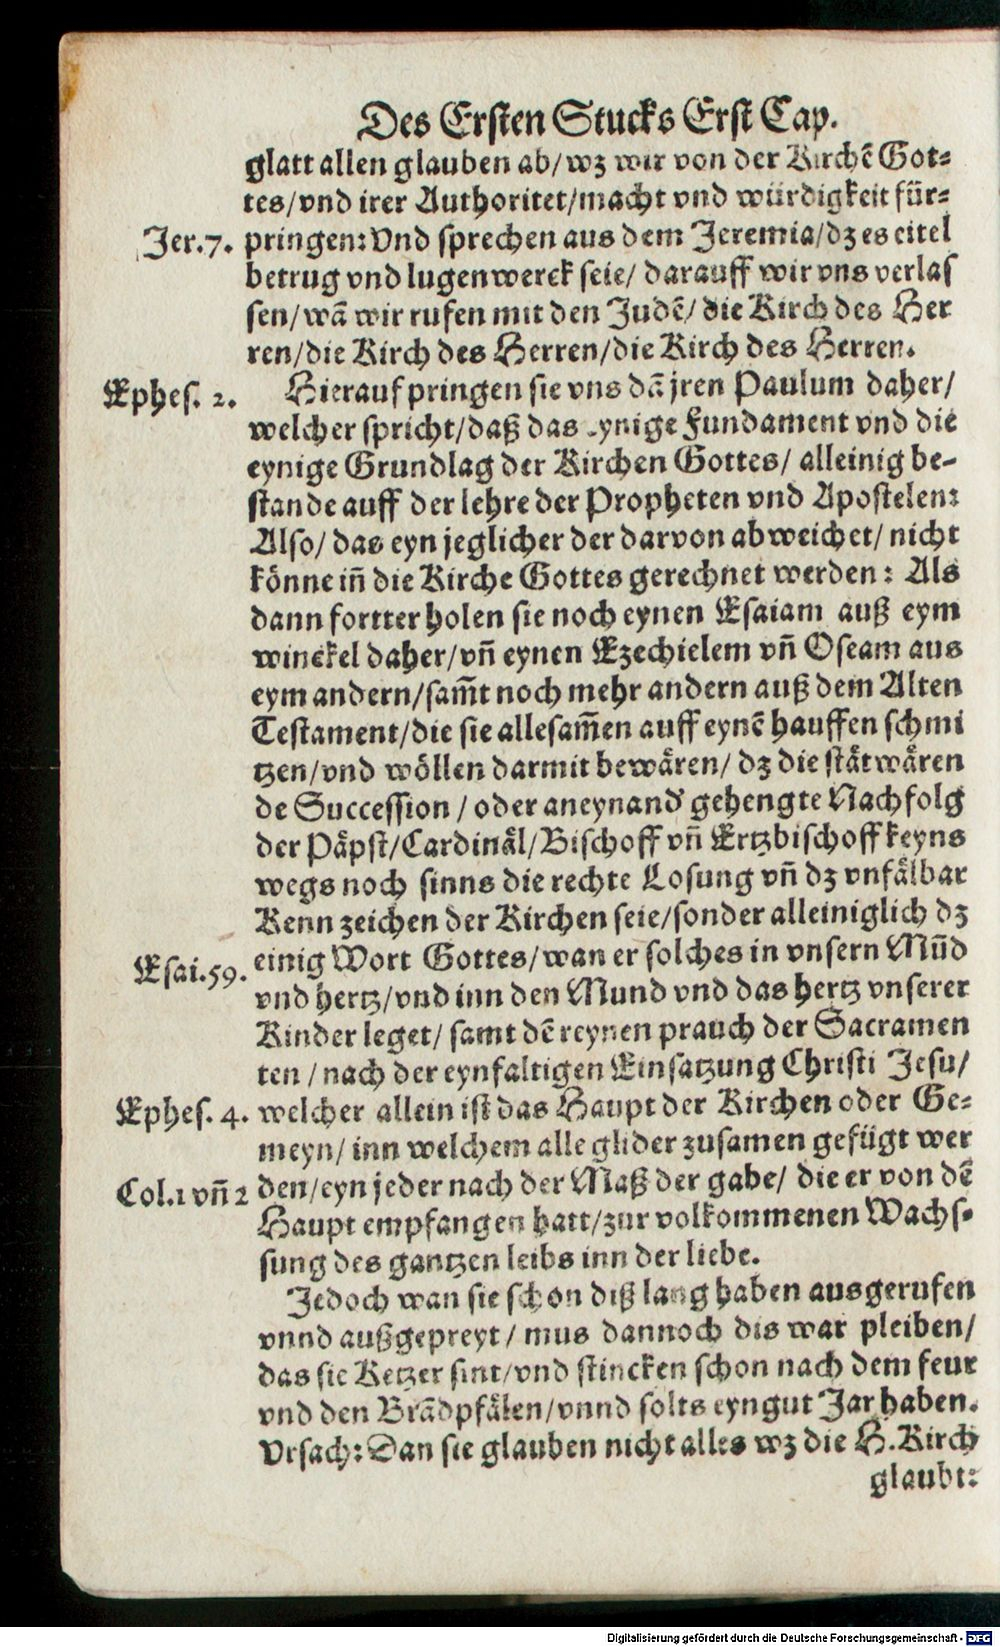 Des Ersten Stucks Erst Cap.
glatt allen glauben ab/wz wir von der Kirchẽ Got⸗
tes/vnd irer Authoritet/macht vnd würdigkeit für⸗
Jer.7. pringen: Vnd sprechen aus dem Jeremia/dz es eitel
betrug vnd lugenwerck seie/ darauff wir vns verlas
sen/wã wir rufen mit den Judẽ/ die Kirch des Her
ren/die Kirch des Herren/die Kirch des Herren.
Ephes. 2. Hierauf pringen sie vns dã jren Paulum daher/
welcher spricht/daß das ynige Fundament vnd die
eynige Grundlag der Kirchen Gottes/ alleinig be⸗
stande auff der lehre der Propheten vnd Apostelen:
Also/ das eyn jeglicher der darvon abweichet/ nicht
könne iñ die Kirche Gottes gerechnet werden: Als
dann fortter holen sie noch eynen Esaiam auß eym
winckel daher/vñ eynen Ezechielem vñ Oseam aus
eym andern/sam̃t noch mehr andern auß dem Alten
Testament/die sie allesam̃en auff eynẽ hauffen schmi
tzen/vnd wöllen darmit bewären/ dz die stätwären
de Succession / oder aneynand' gehengte Nachfolg
der Päpst/Cardinäl/Bischoff vñ Ertzbischoff keyns
wegs noch sinns die rechte Losung vñ dz vnfälbar
Kennzeichen der Kirchen seie/sonder alleiniglich dz
Esai.59. einig Wort Gottes/wan er solches in vnsern Mũd
vnd hertz/vnd inn den Mund vnd das hertz vnserer
Kinder leget/ samt dẽ reynen prauch der Sacramen
ten / nach der eynfaltigen Einsatzung Christi Jesu/
Ephes. 4. welcher allein ist das Haupt der Kirchen oder Ge⸗
meyn/ inn welchem alle glider zusamen gefügt wer
Col.1 vñ 2 den/eyn jeder nach der Maß der gabe/ die er von dẽ
Haupt empfangen hatt/zur volkommenen Wachs⸗
sung des gantzen leibs inn der liebe.
Jedoch wan sie schon diß lang haben ausgerufen
vnnd außgepreyt / mus dannoch dis war pleiben/
das sie Ketzer sint/vnd stincken schon nach dem feur
vnd den Brãdpfälen/vnnd solts eyn gut Jar haben.
Vrsach: Dan sie glauben nicht alles wz die H. Kirch
glaubt:
Digitalisierung gefördert durch die Deutsche Forschungsgemeinschaft - DFG